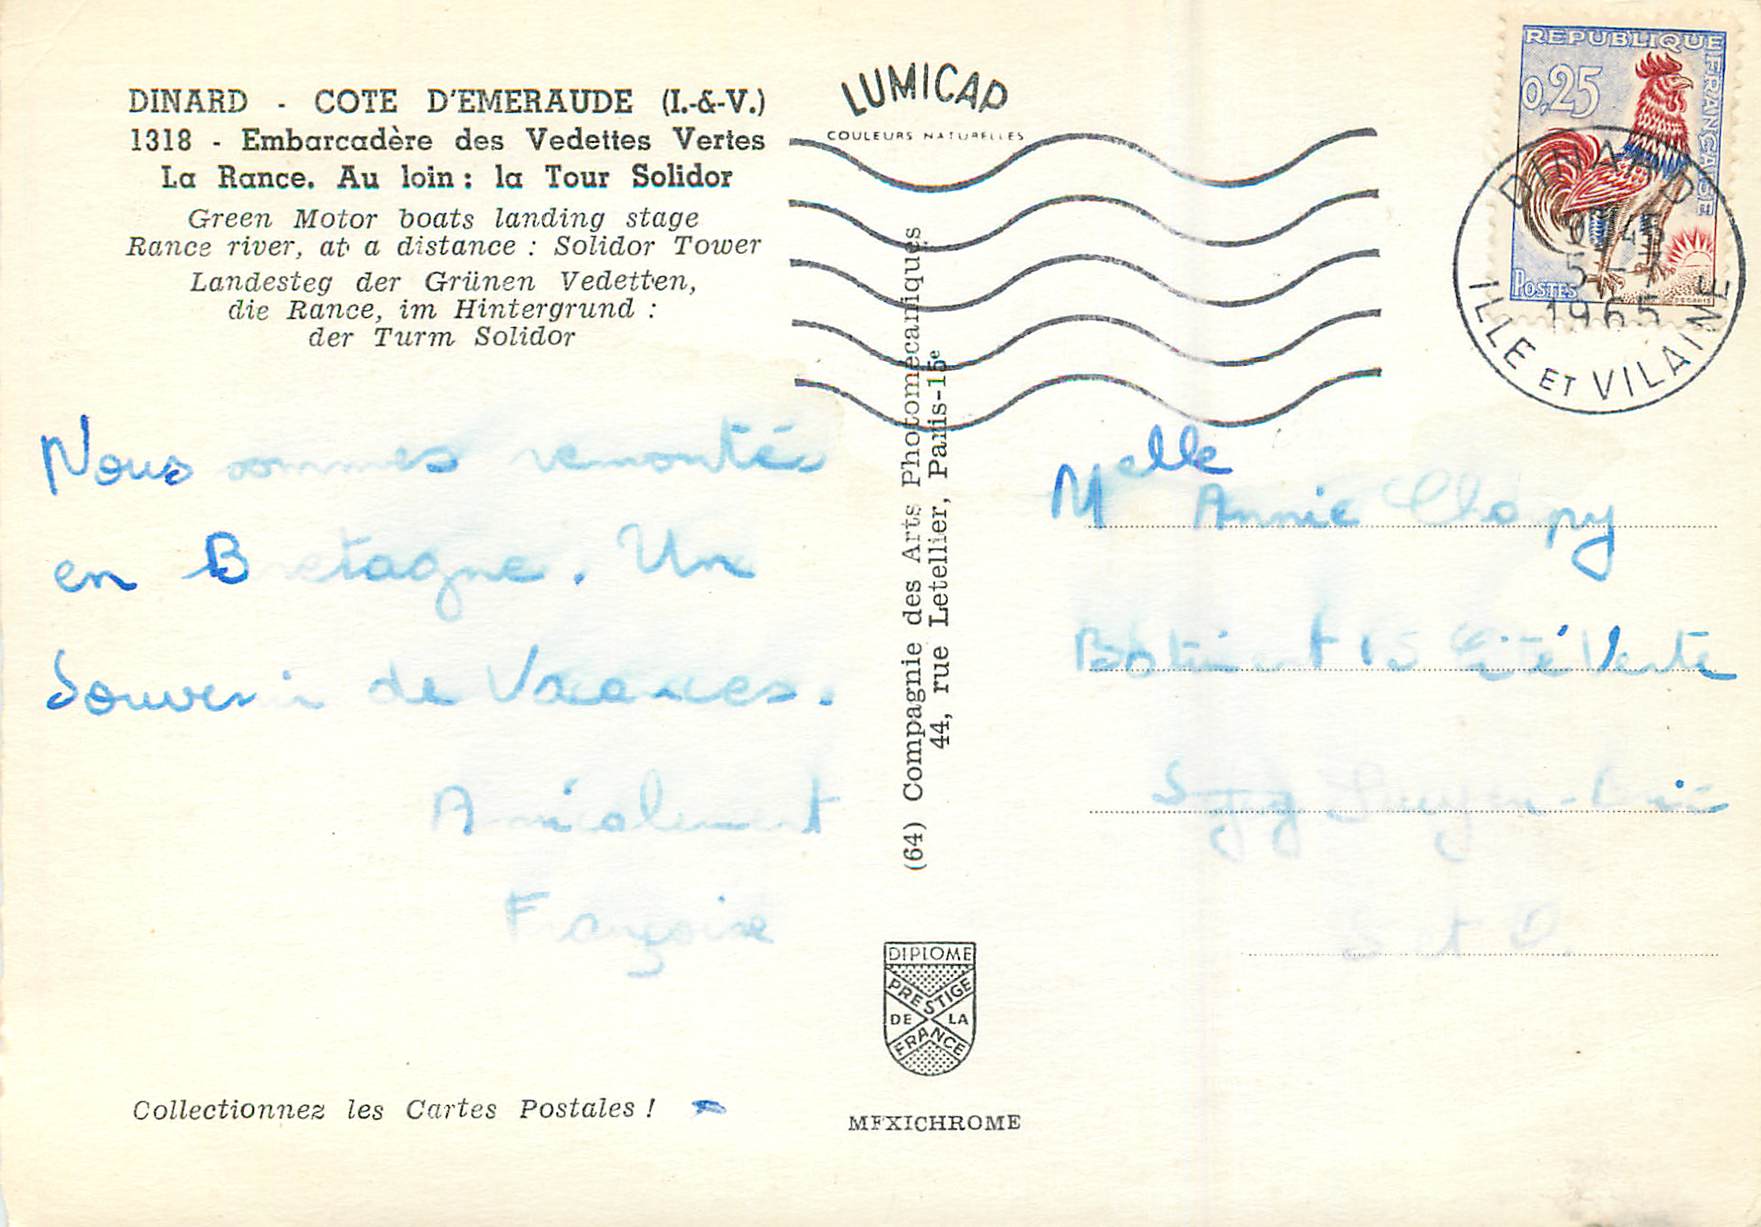 DINARD - COTE D'EMERAUDE (I.-&-V.)
1318 - Embarcadère des Vedettes Vertes
La Rance. Au loin : la Tour Solidor
Green Motor boats landing stage
Rance river, at a distance : Solidor Tower
Landesteg der Grünen Vedetten,
die Rance, im Hintergrund :
der Turm Solidor
LUMICAP
COULEURS NATURELLES
REPUBLIQUE FRANÇAISE
0,25
POSTES
DINARD
5-7
1965
ILLE ET VILAINE
Nous sommes remontés
en Bretagne. Un
Souvenir de Vacances.
Amicalement
Françoise
(64) Compagnie des Arts Photomécaniques
44, rue Letellier, Paris-15e
Melle Annie
Batiment 15 Cité Verte
Sucy en Brie
S et O.
DIPLOME
PRESTIGE
DE LA
FRANCE
Collectionnez les Cartes Postales !
MEXICHROME